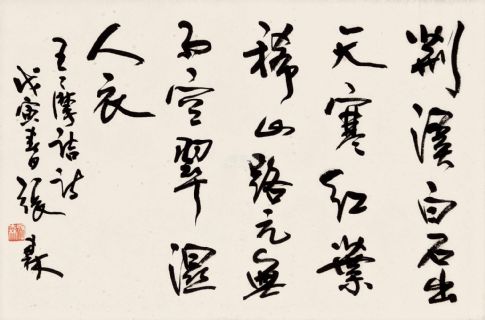 荆溪白石出
天寒红叶
稀山路元无
雨空翠湿
人衣
王摩诘诗
戊寅春日张森